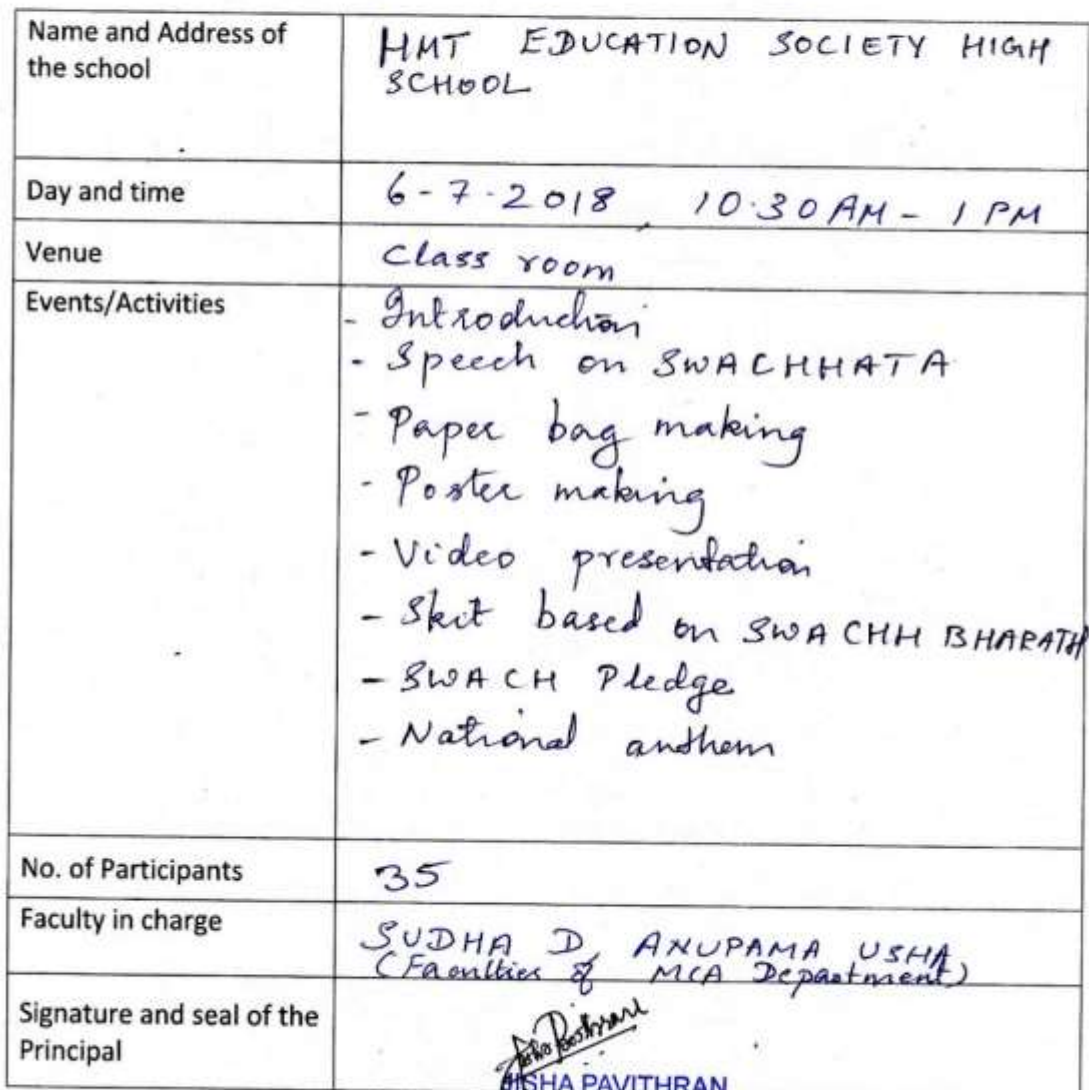 Name and Address of
the school
HMT EDUCATION SOCIETY HIGH
SCHOOL
Day and time
6-7-2018, 10.30 AM - 1 PM
Venue
Class room
Events/Activities
- Introduction
- Speech on SWACHHATA
- Paper bag making
- Poster making
- Video presentation
- Skit based on SWACHH BHARATH
- SWACH Pledge
- National anthem
No. of Participants
35
Faculty in charge
SUDHA D, ANUPAMA USHA
(Faculties of MCA Department)
Signature and seal of the
Principal
PAVITHRAN